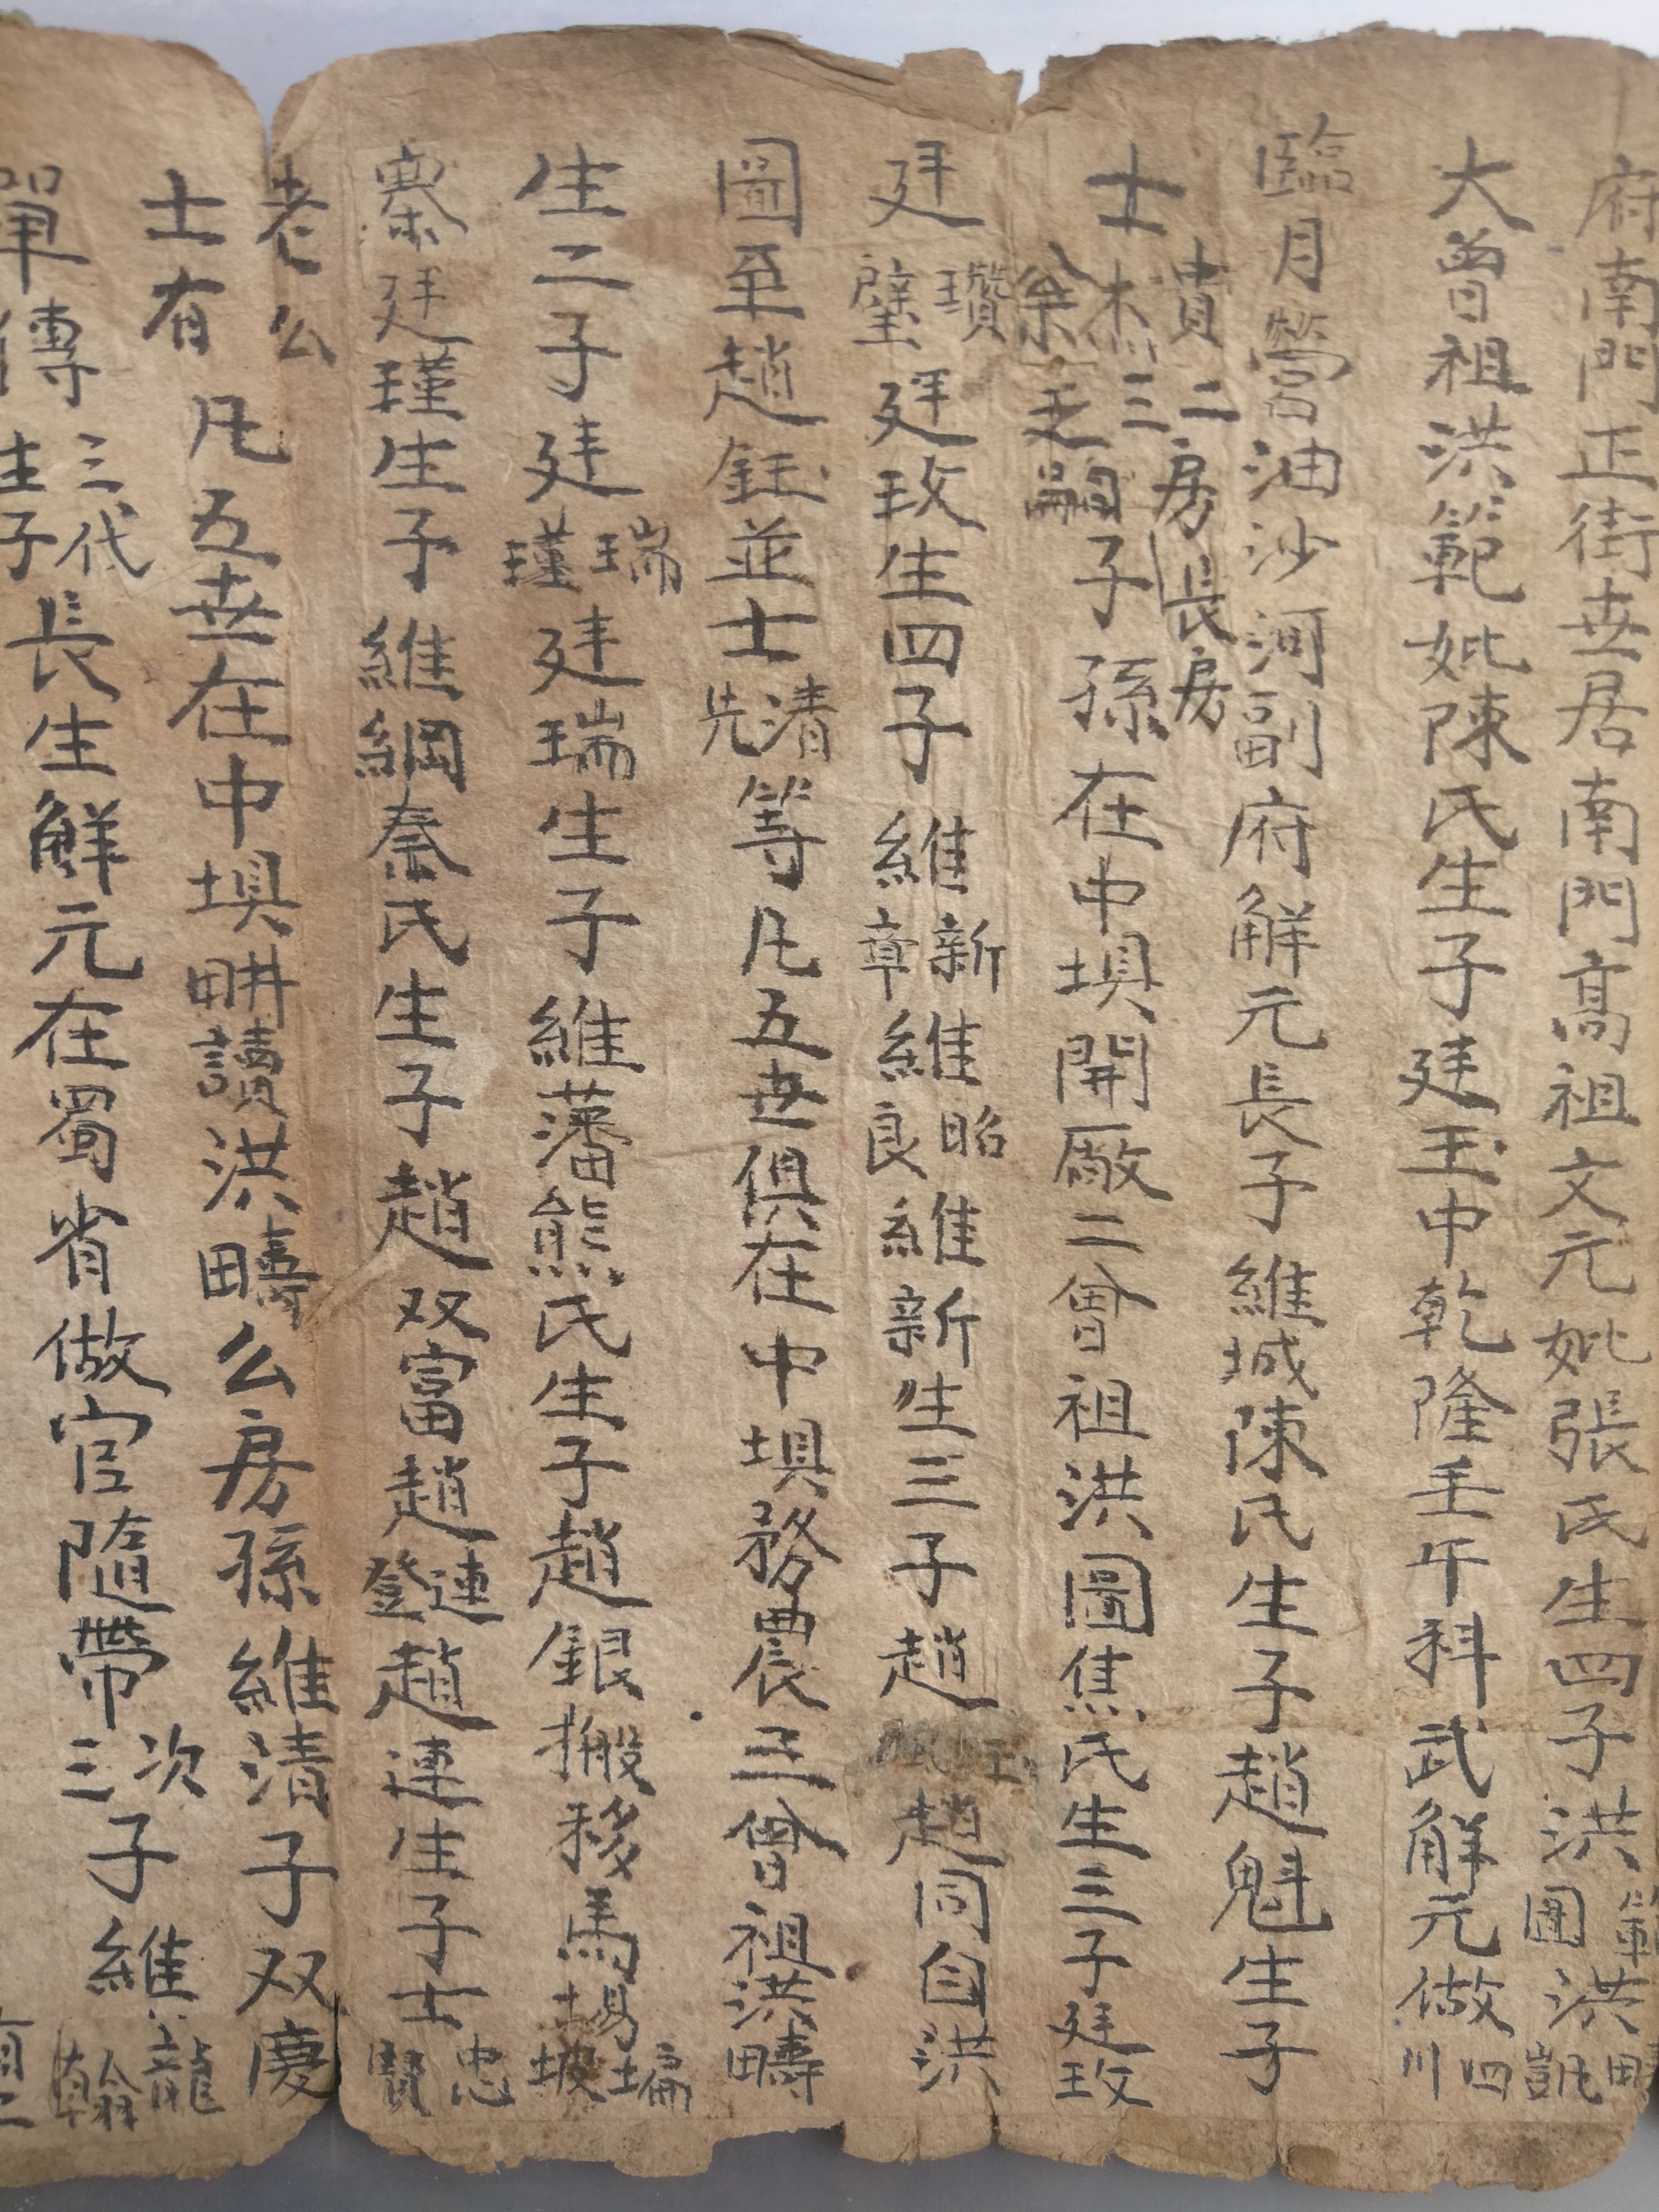 府南門正街世居南門高祖文元妣張氏生四子洪範洪疇圃凱
大曾祖洪範妣陳氏生子廷玉中乾隆壬午科武解元做四川
臨月營油沙河副府解元長子維城陳氏生子趙魁生子
士貴杰余二三房長房乏嗣子孫在中埧開廠二曾祖洪圖焦氏生三子廷玫
廷瓚璧廷玫生四子維新章維昭良維新生三子趙趙同自洪
圖至趙鈺並士清先等凡五世俱在中埧務農三曾祖洪疇
生二子廷瑞瑾廷瑞生子維藩熊氏生子趙銀搬移馬塲塥坡
寨廷瑾生子維綱秦氏生子趙双富趙連登趙連生子士忠賢
老么
士有凡五世在中埧畊讀洪疇么房孫維清子双慶
單傳三代生子長生解元在蜀省做官隨帶次三子維龍翰